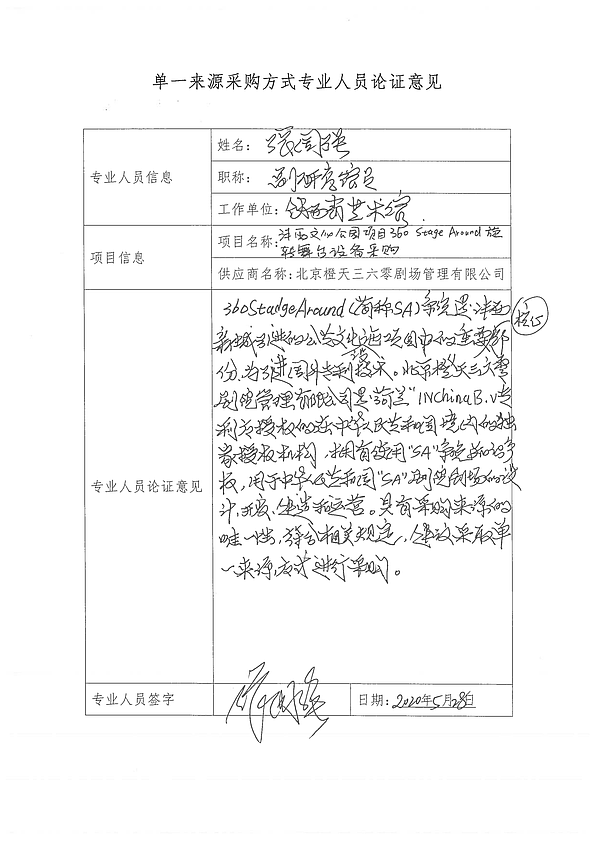 单一来源采购方式专业人员论证意见
专业人员信息
姓名：张国强
职称：副研究馆员
工作单位：陕西省艺术馆
项目信息
项目名称：沣西文化公园项目360 Stage Around 旋
转舞台设备采购
供应商名称：北京橙天三六零剧场管理有限公司
专业人员论证意见
360 StadgeAround（简称SA）系统是沣西
新城引进的公共文化设施项目中的重要部
份，为引进国外专利技术。北京橙天三六零
剧场管理有限公司是荷兰"INChina B.V专
利方授权的在中华人民共和国境内的独
家授权机构，拥有使用"SA"系统的许可
权，用于中华人民共和国"SA"剧院剧场的设
计、开发、建造和运营。具有采购来源的
唯一性，符合相关规定，建议采取单
一来源方式进行采购。
专业人员签字
日期：2020年5月28日